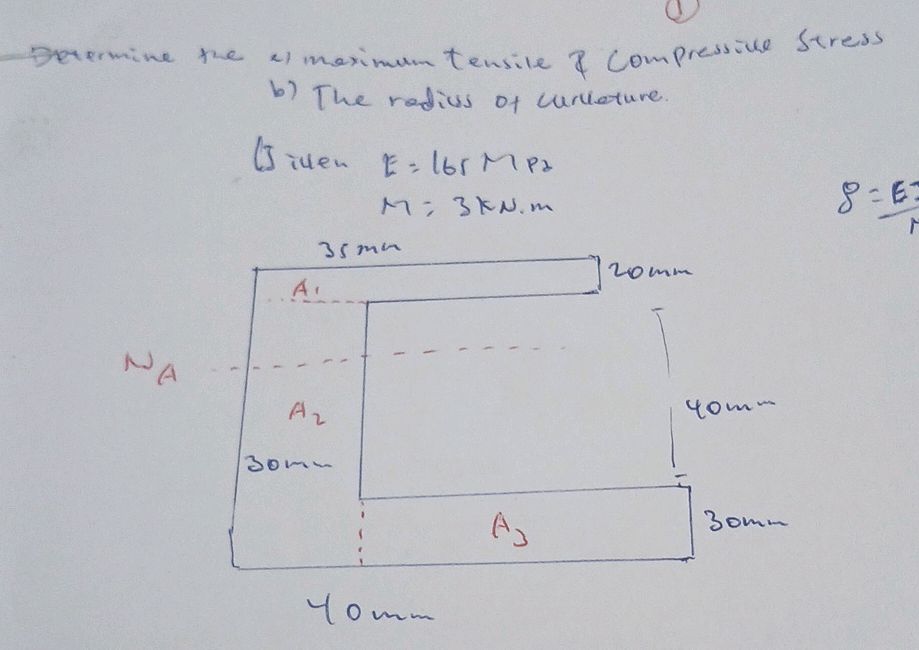 ①
Determine the a) maximum tensile & compressive stress
b) The radius of curvature.
Given E = 165 MPa
M = 3 kN.m
ρ = EI
M
35 mm
20mm
A1
NA
A2
40mm
30mm
A3
30mm
40mm